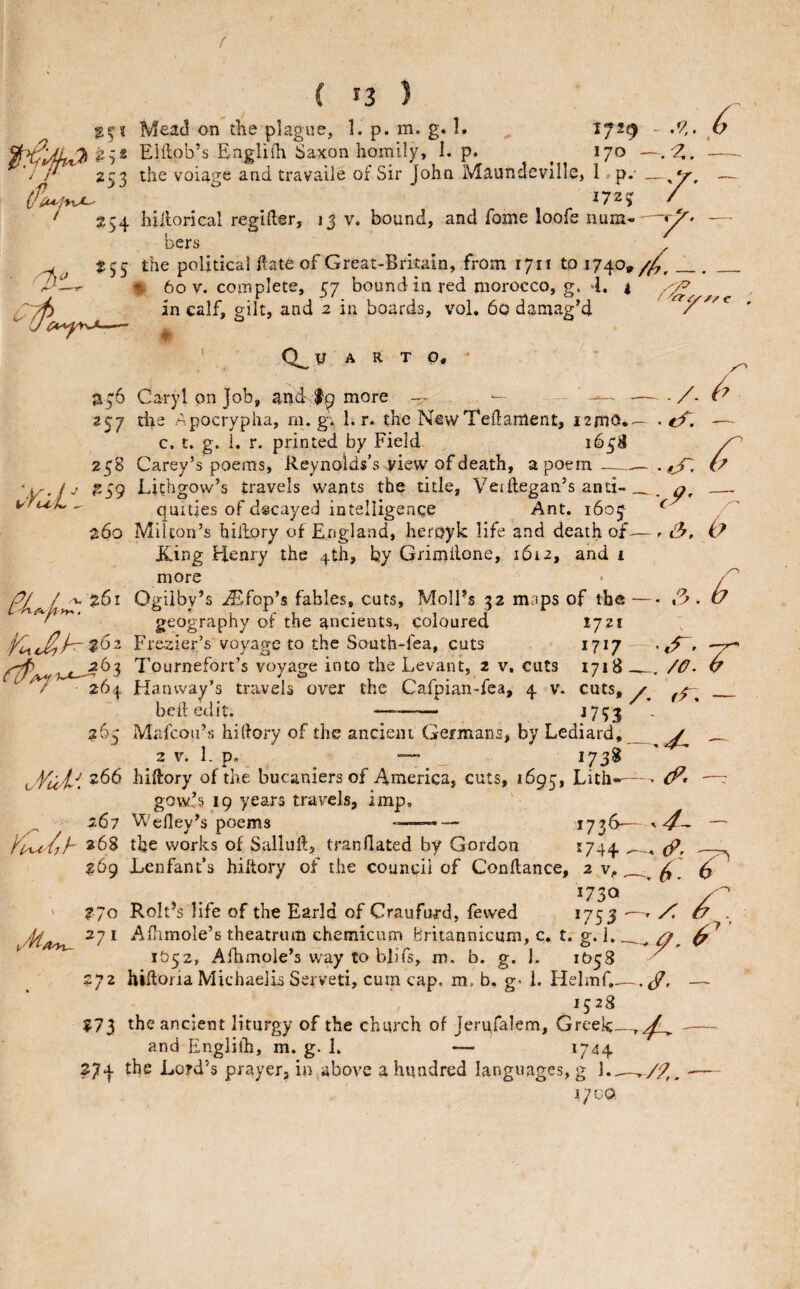 ( 13 )
251 Mead on the plague, l. p. m. g. l. 1729 - . 2 . 6
252 Elſtob's Engliſh Saxon homily, l. p. 170 — . 2 . —
253 the voiage and travaile of Sir John Maundeville, l. p. —
1725
254 hiſtorical regiſter, 13 v. bound, and ſome looſe num-
bers
255 the political ſtate of Great-Britain, from 1711 to 1740,
60 v. complete, 57 bound in red morocco, g. l.
in calf, gilt, and 2 in boards, vol. 60 damag'd
QUARTO.
256 Caryl on Job, and 19 more — — — - 1 - 6
257 the Apocrypha, m. g. l. r. the New Teſtament, 12mo. —
c. t. g. l. r. printed by Field 1658
258 Carey's poems, Reynolds's view of death, a poem — . 5 . 6
259 Lithgow's travels wants the title, Verſtegan's anti- — . 9 . —
quities of decayed intelligence Ant. 1605
260 Milton's hiſtory of England, heroyk life and death of — . 3 . 6
King Henry the 4th, by Grimſtone, 1612, and 1
more
261 Ogilby's Æſop's fables, cuts, Moll's 32 maps of the — . 3 . 6
geography of the ancients, coloured 1721
262 Frezier's voyage to the South-ſea, cuts 1717 . 5 . —
263 Tournefort's voyage into the Levant, 2 v. cuts 1718 — . 10 . 6
264 Hanway's travels over the Caſpian-ſea, 4 v. cuts, 1 . 5 . —
beſt edit. —— 1753
265 Maſcou's hiſtory of the ancient Germans, by Lediard, 4 —
2 v. l. p. — 1738
266 hiſtory of the bucaniers of America, cuts, 1695, Lith- — . 8 . —
gow's 19 years travels, imp.
267 Weſley's poems —— 1736 — . 4 — —
268 the works of Salluſt, tranſlated by Gordon 1744 — . 8 . —
269 Lenfant's hiſtory of the council of Conſtance, 2 v. — . 6 . 6
1730
270 Rolt's life of the Earld of Craufurd, ſewed 1753 — . 1 . 6
271 Aſhmole's theatrum chemicum Britannicum, c. t. g. l. — . 9 . 6
1652, Aſhmole's way to bliſs, m. b. g. l. 1658
272 hiſtoria Michaelis Serveti, cum cap. m. b. g. l. Helmſ. — . 8 . —
1528
273 the ancient liturgy of the church of Jeruſalem, Greek — . 4 . —
and Engliſh, m. g. l. — 1744
274 the Lord's prayer, in above a hundred languages, g l. — . 12 . —
1700